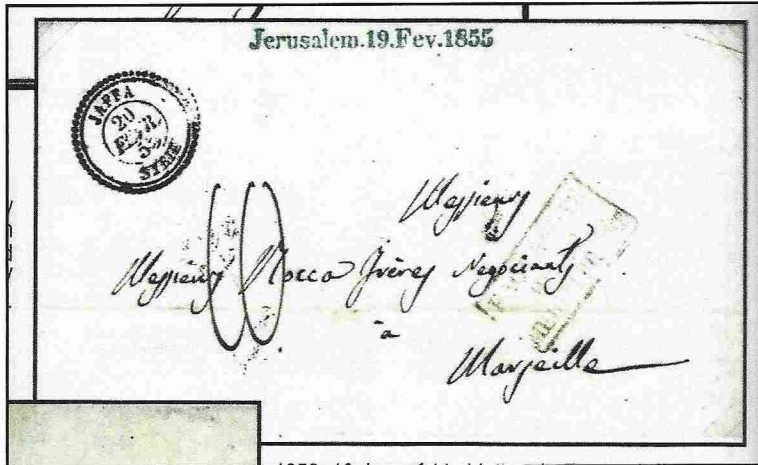 Jerusalem.19.Fev.1855
JAFFA
20
FEVR.
55
SYRIE
Messieurs
Messieurs Rocca frères Negociants
à
Marseille